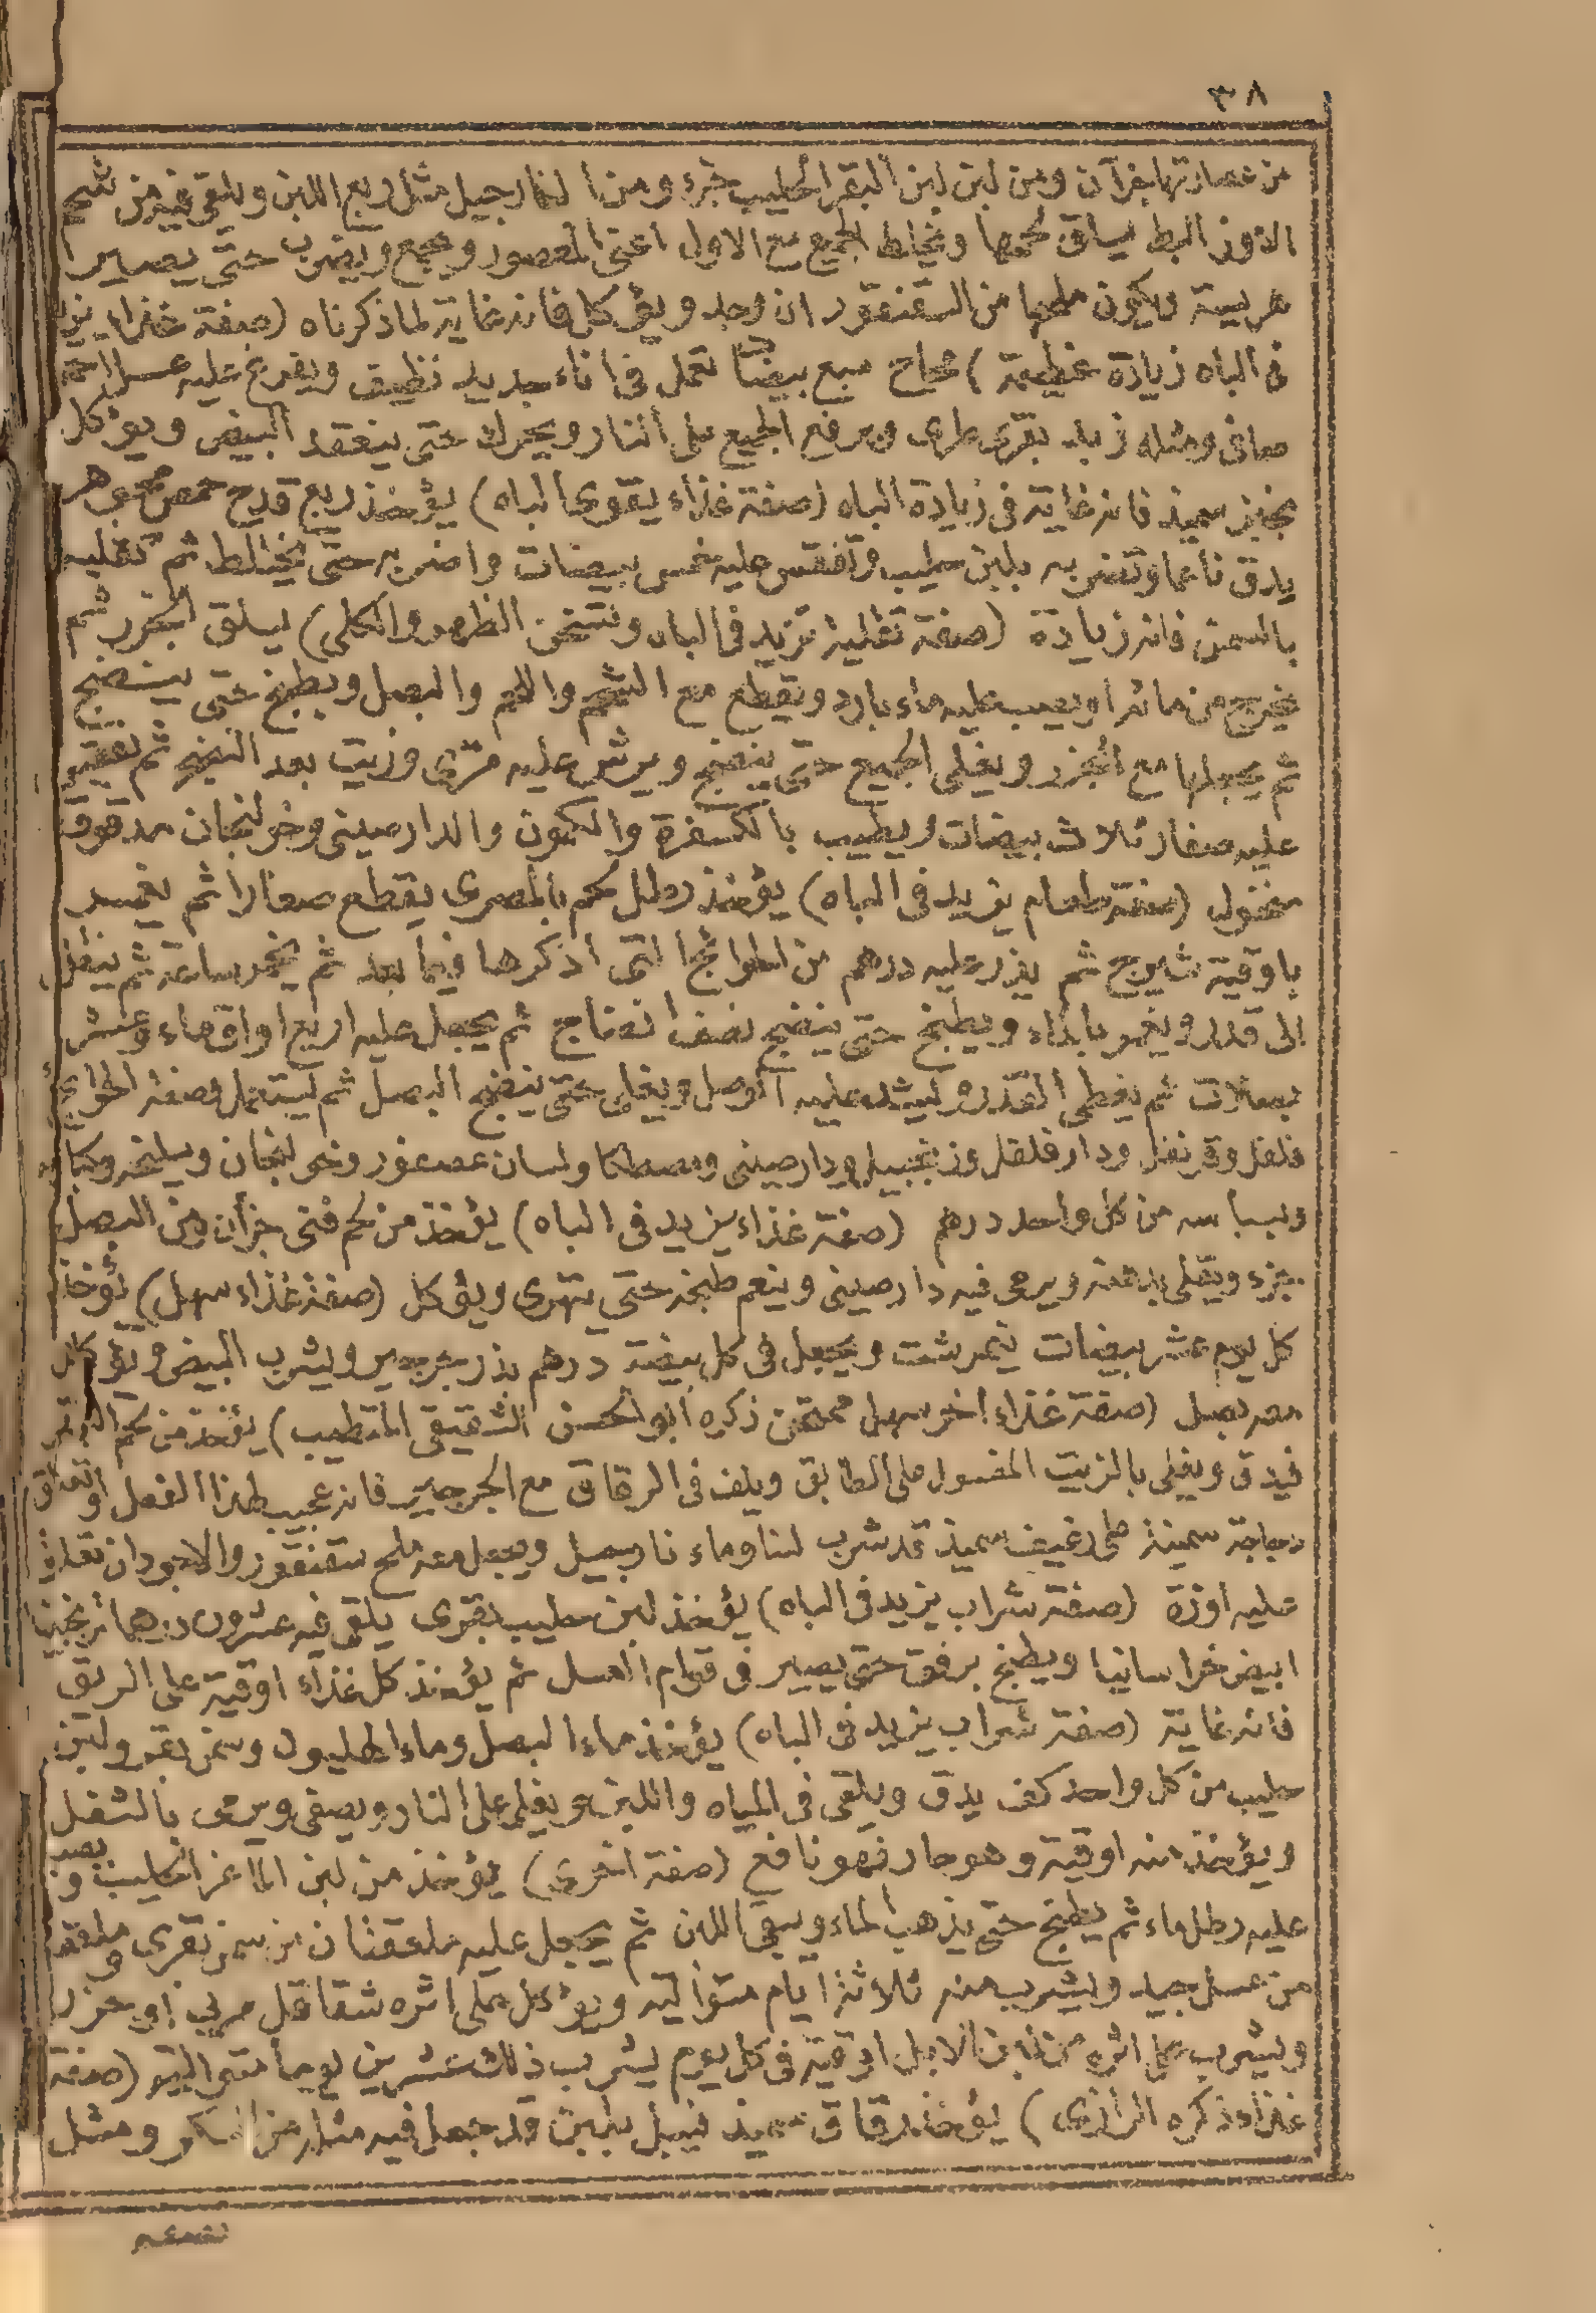 ٣٨
من عصارتها جزآن ومن لبن لبن البقر الحليب جزء ومن النارجيل مثل ربع اللبن ويلقى فيه من شحم
الاوز البط يسلق لحمها ويخلط الجميع مع الاول اعنى المعصور ويجمع ويضرب حتى يصير
هريسة ويكون ملحها من السقنقور ان وجد ويؤكل فانه غاية لما ذكرناه (صفة غذاء يزيد
فى الباه زيادة عظيمة) محاح سبع بيضا تعمل فى اناء جديد نظيف ويفرغ عليه عسل
صافى ومثله زبد بقرى طرى ويرفع الجميع على النار ويحرك حتى ينعقد البيض ويؤكل
بخبز سميذ فانه غاية فى زيادة الباه (صفة غذاء يقوى الباه) يؤخذ ربع قدح حمص مجوهر
يدق ناعما وتضربه بلبن حليب وتفقس عليه خمس بيضات واضربه حتى يختلط ثم تقليه
بالسمن فانه زيادة (صفة تقلية تزيد فى الباه وتسخن الظهر والكلى) يسلق الجزر ثم
يخرج من مائه ويصب عليه ماء بارد ويقطع مع الشحم واللحم والبصل ويطبخ حتى ينضج
ثم يجعلها مع الجزر ويغلى الجميع حتى ينضج ويرش عليه مرى وزيت بعد النضج ثم تفقس
عليه صفار ثلاث بيضات ويطيب بالكسفرة والكمون والدارصينى وخولنجان مدقوق
منخول (صفة طعام يزيد فى الباه) يؤخذ رطل لحم بالمصرى يقطع صغارا ثم يغمر
باوقية شيرج ثم يذر عليه درهم من الحوائج التى اذكرها فيما بعد ثم يخمر ساعة ثم ينقل
الى قدر ويغمر بالماء ويطبخ حتى ينضج نصف انضاج ثم يجعل عليه اربع اواق ماء وعشر
بصلات ثم يغطى القدر ويشد عليه الوصل ويغلى حتى ينضج البصل ثم يستعمل وصفة الحوائج
فلفل وقرنفل ودار فلفل وزنجبيل ودارصينى ومصطكا ولسان عصفور وخولنجان وسليخه وكبابه
وبسباسه من كل واحد درهم (صفة غذاء يزيد فى الباه) يؤخذ من لحم فتى جزآن ومن البصل
جزء ويقلى بدهنه ويرمى فيه دارصينى وينعم طبخه حتى يتهرى ويؤكل (صفة غذاء سهل) يؤخذ
كل يوم عشر بيضات نيمرشت ويجعل فى كل بيضة درهم بذر جرجير ويشرب البيض ويؤكل
معه بصل (صفة غذاء اخر سهل ممتحن ذكره أبو الحسن الشقيقى المتطيب) يؤخذ من لحم
فيدق ويغلى بالزيت المغسول على الطابق ويلف فى الرقاق مع الجرجير فانه عجيب لهذا الفعل او تعلق
دجاجة سمينة على رغيف سميذ قد شرب لبنا وماء نارجيل ويجعل معه ملح سقنقور والاجود ان تعلق
عليه اوزة (صفة شراب يزيد فى الباه) يؤخذ لبن حليب بقرى يلقى فيه عشرون درهما ترنجبينا
ابيض خراسانيا ويطبخ برفق حتى يصير فى قوام العسل ثم يؤخذ كل غذاء اوقية على الريق
فانه غاية (صفة شراب يزيد فى الباه) يؤخذ ماء البصل وماء الهليون وسمن بقر ولبن
حليب من كل واحد كف يدق ويلقى فى المياه واللبن ويغلى على النار ويصفى ويرمى بالثفل
ويؤخذ منه اوقية وهو حار فهو نافع (صفة اخرى) يؤخذ من لبن الماعز الحليب ويصب
عليه رطل ماء ثم يطبخ حتى يذهب الماء ويبقى اللبن ثم يجعل عليه ملعقتان من سمن بقرى وملعقه
من عسل جيد ويشرب منه ثلاثة ايام متواليه ويؤكل على اثره شقاقل مربى او جزر
ويشرب على اثره من لبن الابل اوقية فى كل يوم يشرب ذلك عشرين يوما متواليه (صفة
غذاء ذكره الرازى) يؤخذ رقاق سميذ فيبل بلبن قد جعل فيه مثله من السكر ومثل